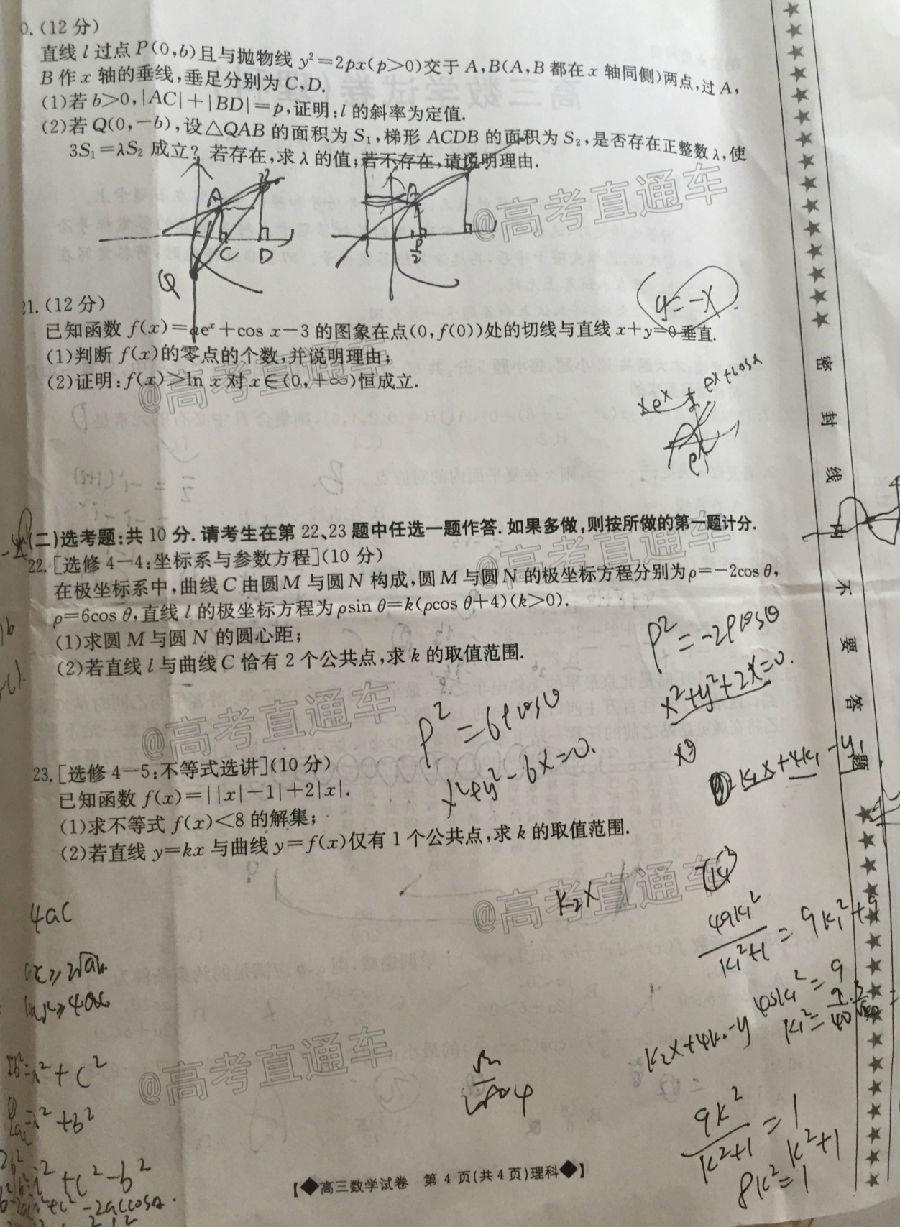 0.(12分)
直线 l 过点 P(0,b)且与抛物线 y²=2px(p>0)交于 A,B(A,B 都在 x 轴同侧)两点,过 A,
B 作 x 轴的垂线,垂足分别为 C,D.
(1)若 b>0,|AC|+|BD|=p,证明:l 的斜率为定值.
(2)若 Q(0,-b),设△QAB 的面积为 S₁,梯形 ACDB 的面积为 S₂,是否存在正整数 λ,使
3S₁=λS₂ 成立?若存在,求 λ 的值;若不存在,请说明理由.
A
C D
Q
p/2
y=-x
21.(12分)
已知函数 f(x)=aeˣ+cos x-3 的图象在点(0,f(0))处的切线与直线 x+y=0 垂直.
(1)判断 f(x)的零点的个数,并说明理由;
(2)证明:f(x)>ln x 对 x∈(0,+∞)恒成立.
(二)选考题:共 10 分.请考生在第 22、23 题中任选一题作答.如果多做,则按所做的第一题计分.
22.[选修 4-4:坐标系与参数方程](10 分)
在极坐标系中,曲线 C 由圆 M 与圆 N 构成,圆 M 与圆 N 的极坐标方程分别为ρ=-2cos θ,
ρ=6cos θ,直线 l 的极坐标方程为ρsin θ=k(ρcos θ+4)(k>0).
(1)求圆 M 与圆 N 的圆心距;
(2)若直线 l 与曲线 C 恰有 2 个公共点,求 k 的取值范围.
ρ²=-2ρcosθ
x²+y²+2x=0.
ρ²=6ρcosθ
x²+y²-6x=0.
k₁x+4k₁-y
23.[选修 4-5:不等式选讲](10 分)
已知函数 f(x)=||x|-1|+2|x|.
(1)求不等式 f(x)<8 的解集;
(2)若直线 y=kx 与曲线 y=f(x)仅有 1 个公共点,求 k 的取值范围.
k₂x
49k₁²/k₁²+1=9k₁²+9
40k₁²=9
k₁²=9/40
k₂x+4k₂-y
9k²/k²+1=1
k²+1
8k²=1
4ac
+c²
+b²
+c²-b²
【◆高三数学试卷 第 4 页(共 4 页)理科◆】
密封线内不要答题
@高考直通车
@高考直通车
@高考直通车
@高考直通车
@高考直通车
@高考直通车